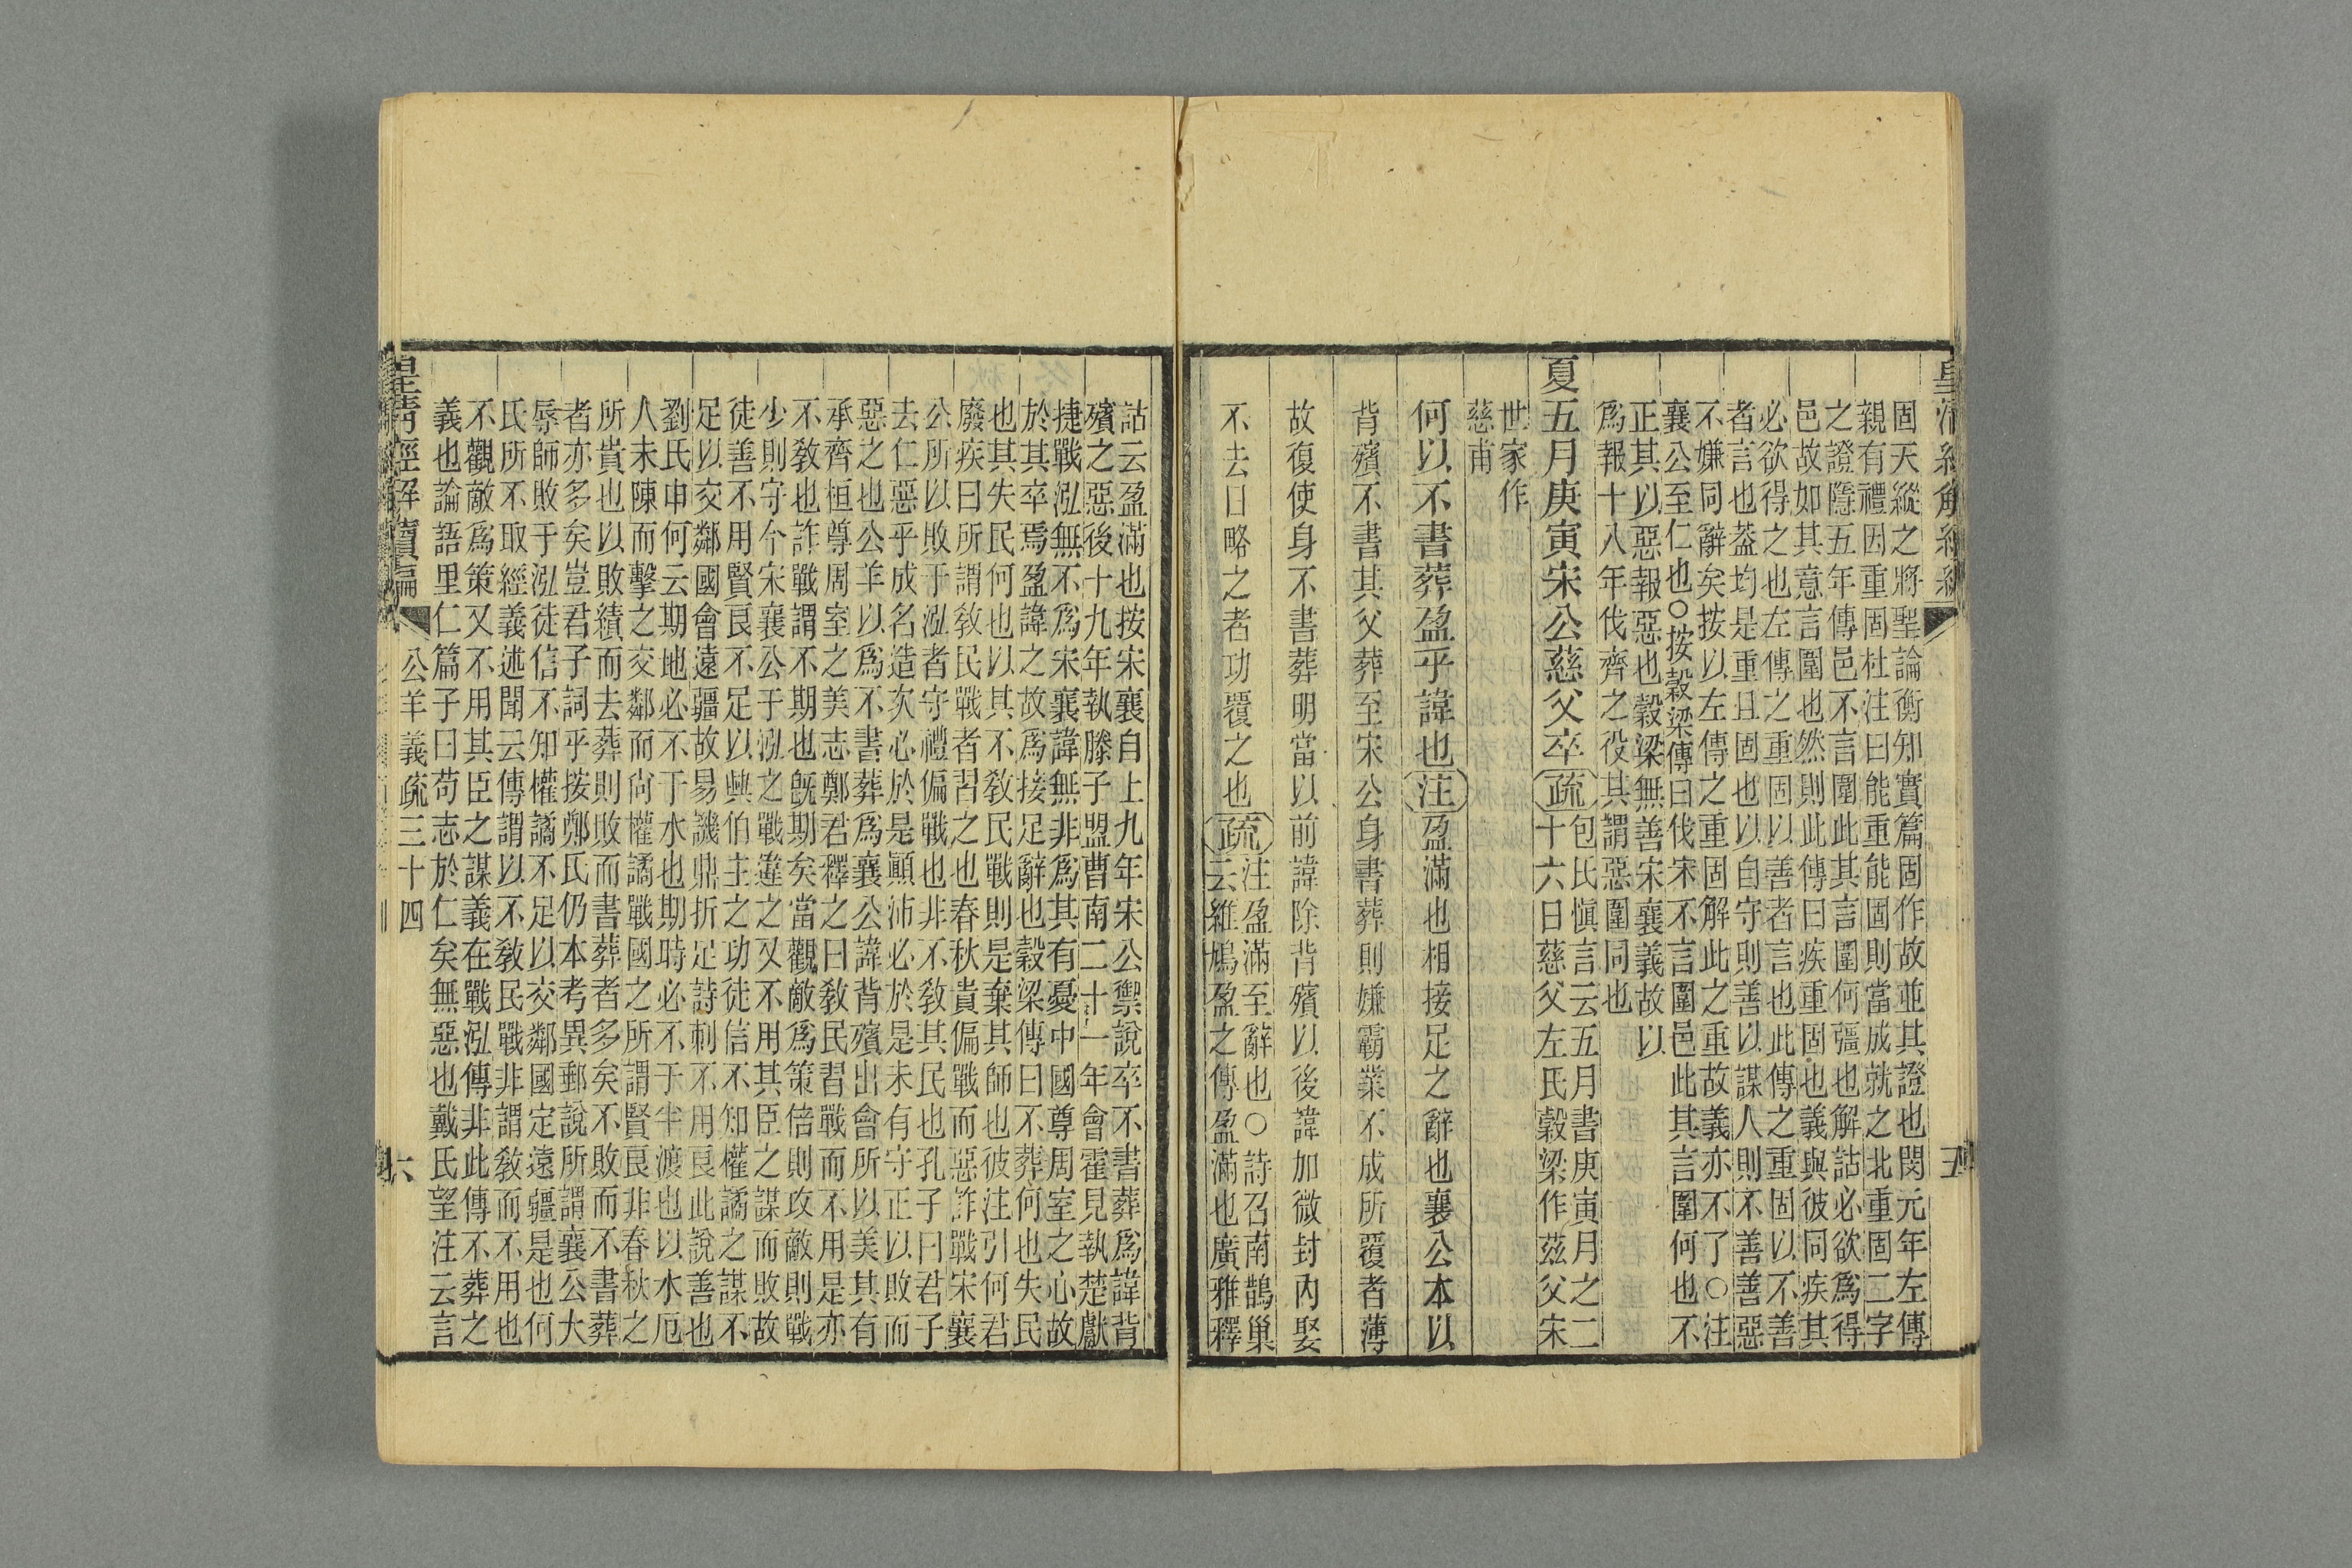 皇清經解續編 五
固天縱之將聖論衡知實篇固作故並其證也閔元年左傳
親有禮因重固杜注曰能重能固則當成就之北重固二字
之證隱五年傳邑不言圍此其言圍何彊也解詁必欲爲得
邑故如其意言圍也然則此傳曰疾重固也義與彼同疾其
必欲得之也左傳之重固以善者言也此傳之重固以不善
者言也葢均是重且固也以自守則善以謀人則不善善惡
不嫌同辭矣按以左傳之重固解此之重故義亦不了○注
襄公至仁也○按穀梁傳曰伐宋不言圍邑此其言圍何也不
正其以惡報惡也穀梁無善宋襄義故以
爲報十八年伐齊之役其謂惡圍同也
夏五月庚寅宋公慈父卒疏包氏愼言云五月書庚寅月之二
十六日慈父左氏穀梁作茲父宋
世家作
慈甫
何以不書葬盈乎諱也注盈滿也相接足之辭也襄公本以
背殯不書其父葬至宋公身書葬則嫌霸業不成所覆者薄
故復使身不書葬明當以前諱除背殯以後諱加微封內娶
不去日略之者功覆之也疏注盈滿至辭也○詩召南鵲巢
云維鳩盈之傳盈滿也廣雅釋
詁云盈滿也按宋襄自上九年宋公禦說卒不書葬爲諱背
殯之惡後十九年執滕子盟曹南二十一年會霍見執楚獻
捷戰泓無不爲宋襄諱無非爲其有憂中國尊周室之心故
於其卒焉盈諱之故爲接足辭也穀梁傳曰不葬何也失民
也其失民何也以其不敎民戰則是棄其師也彼注引何君
廢疾曰所謂敎民戰者習之也春秋貴偏戰而惡詐戰宋襄
公所以敗于泓者守禮偏戰也非不敎其民也孔子曰君子
去仁惡乎成名造次必於是顚沛必於是未有守正以敗而
惡之也公羊以爲不書葬爲襄公諱背殯出會所以美其有
承齊桓尊周室之美志鄭君釋之曰敎民習戰而不用是亦
不敎也詐戰謂不期也旣期矣當觀敵爲策倍則攻敵則戰
少則守今宋襄公于泓之戰違之又不用其臣之謀而敗故
徒善不用賢良不足以興伯主之功徒信不知權譎之謀不
足以交鄰國會遠疆故易譏鼎折足詩刺不用良此說善也
劉氏申何云期地必不于水也期時必不于半渡也以水厄
人未陳而擊之交鄰而尙權譎戰國之所謂賢良非春秋之
所貴也以敗績而去葬則敗而書葬者多矣不敗而不書葬
者亦多矣豈君子詞乎按鄭氏仍本考異郵說所謂襄公大
辱師敗于泓徒信不知權譎不足以交鄰國定遠疆是也何
氏所不取經義述聞云傳謂以不敎民戰非謂敎而不用也
不觀敵爲策又不用其臣之謀義在戰泓傳非此傳不葬之
義也論語里仁篇子曰苟志於仁矣無惡也戴氏望注云言
皇清經解續編 公羊義疏三十四 六